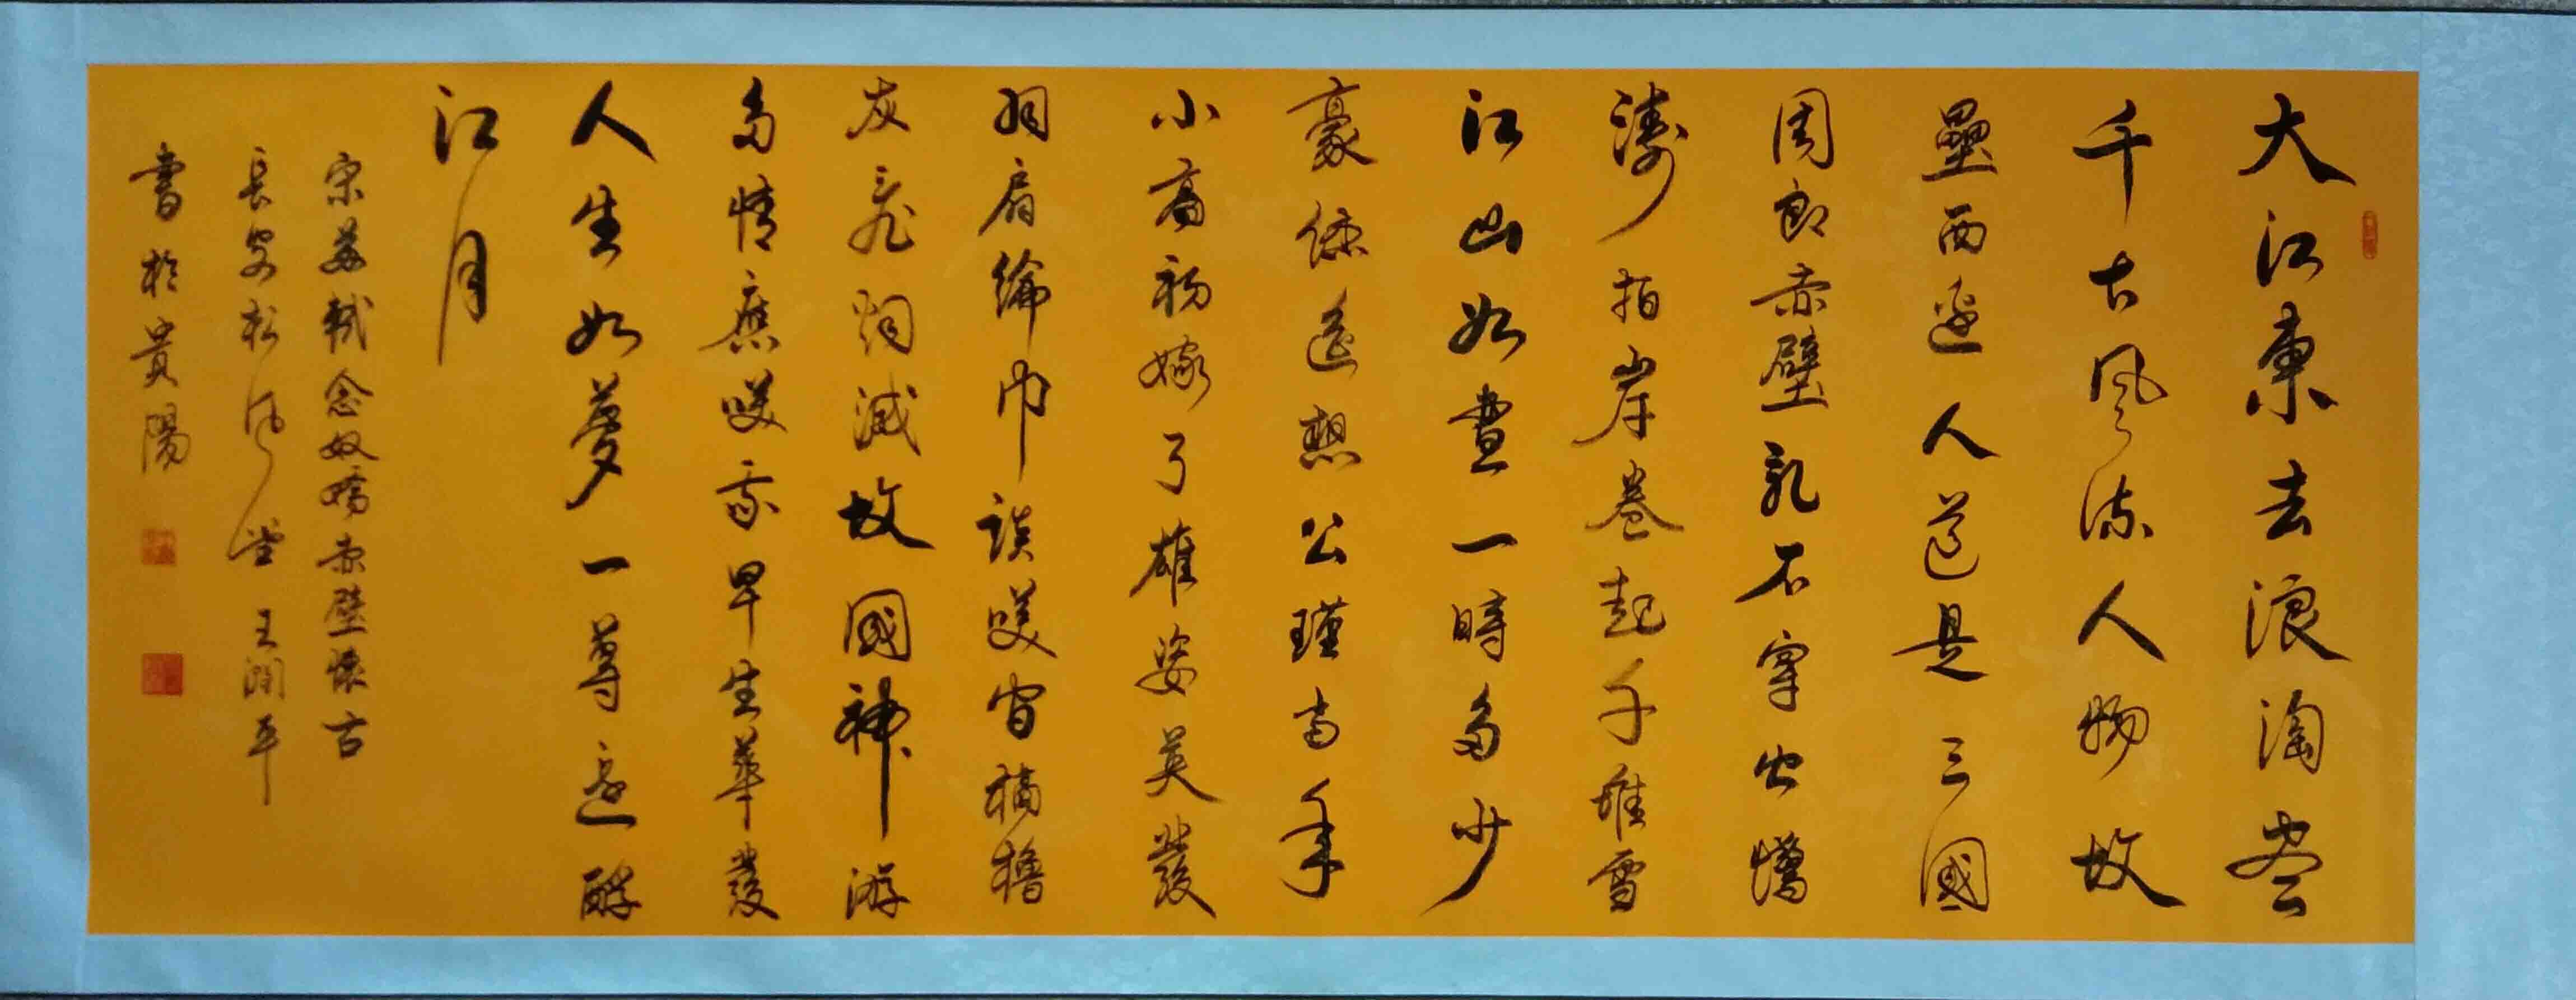 大江東去浪淘盡
千古風流人物故
壘西邊人道是三國
周郎赤壁乱石穿空驚
濤拍岸卷起千堆雪
江山如畫一時多少
豪傑遙想公瑾當年
小喬初嫁了雄姿英發
羽扇綸巾談笑間檣櫓
灰飛烟滅故國神游
多情應笑我早生華髮
人生如夢一尊還酹
江月
宋蘇軾念奴嬌赤壁懷古
長安松風堂王潤平
書於貴陽